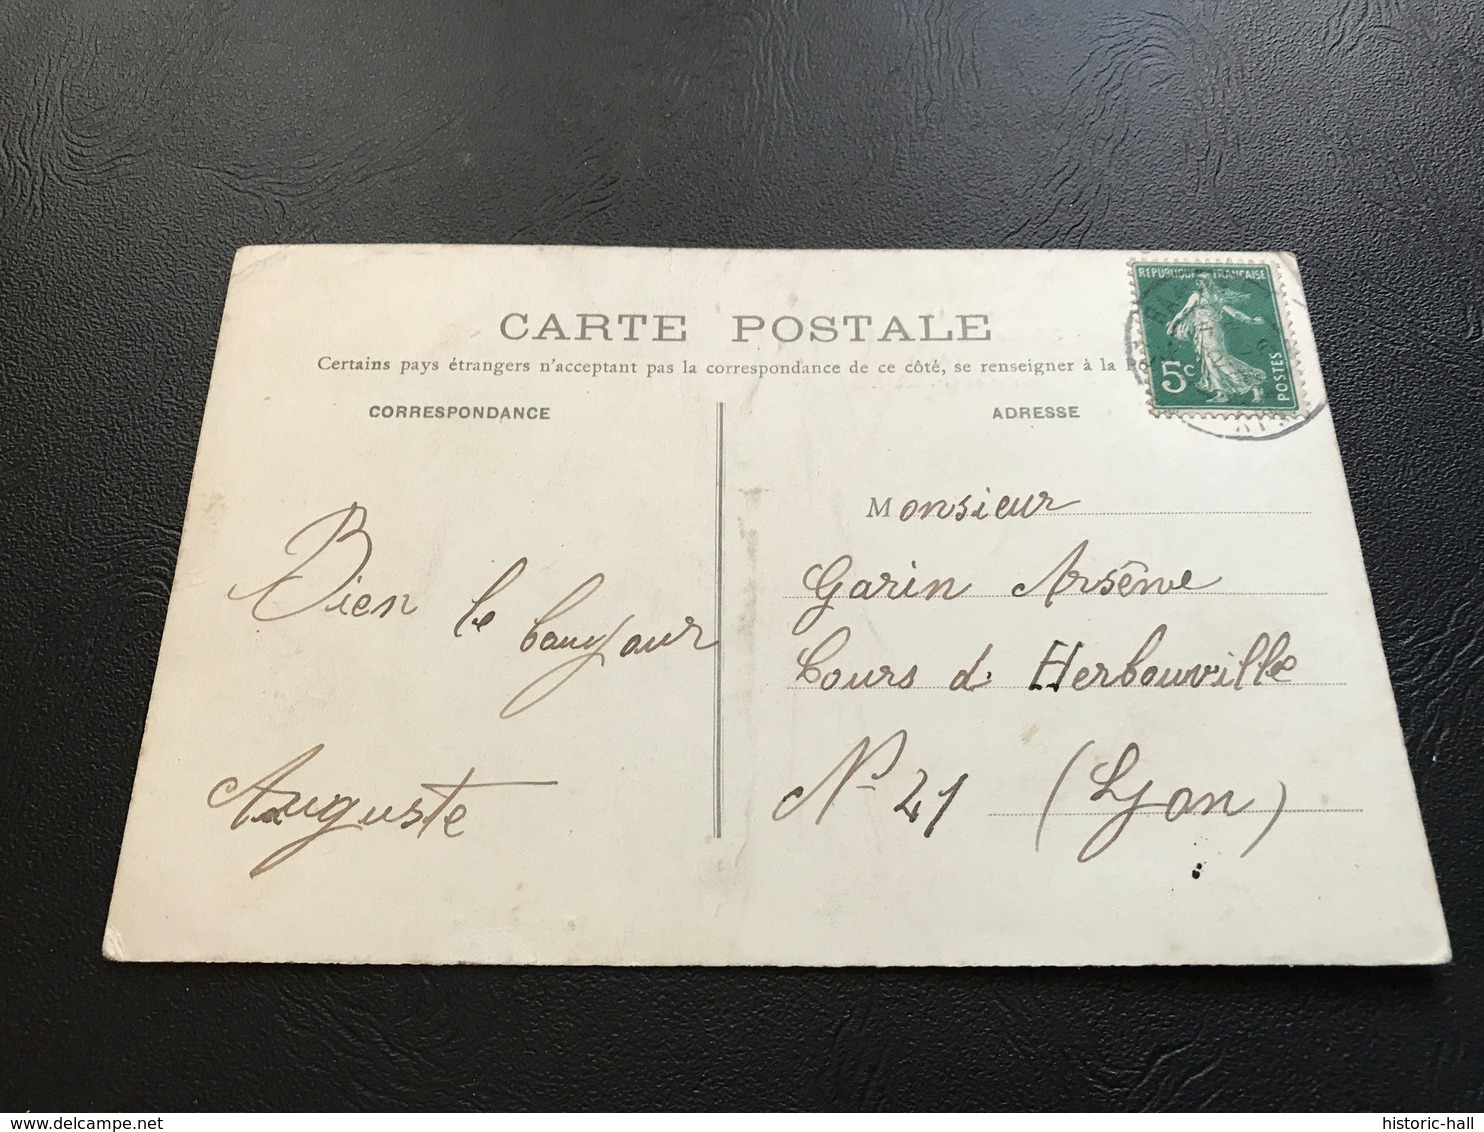 CARTE POSTALE
Certains pays étrangers n'acceptant pas la correspondance de ce côté, se renseigner à la Po
CORRESPONDANCE
ADRESSE
REPUBLIQUE FRANÇAISE
5c
POSTES
Bien le
bonjour
Auguste
Monsieur
Garin Arsène
Cours d Herbouville
N° 21 (Lyon)
delcampe.net
historic-hall